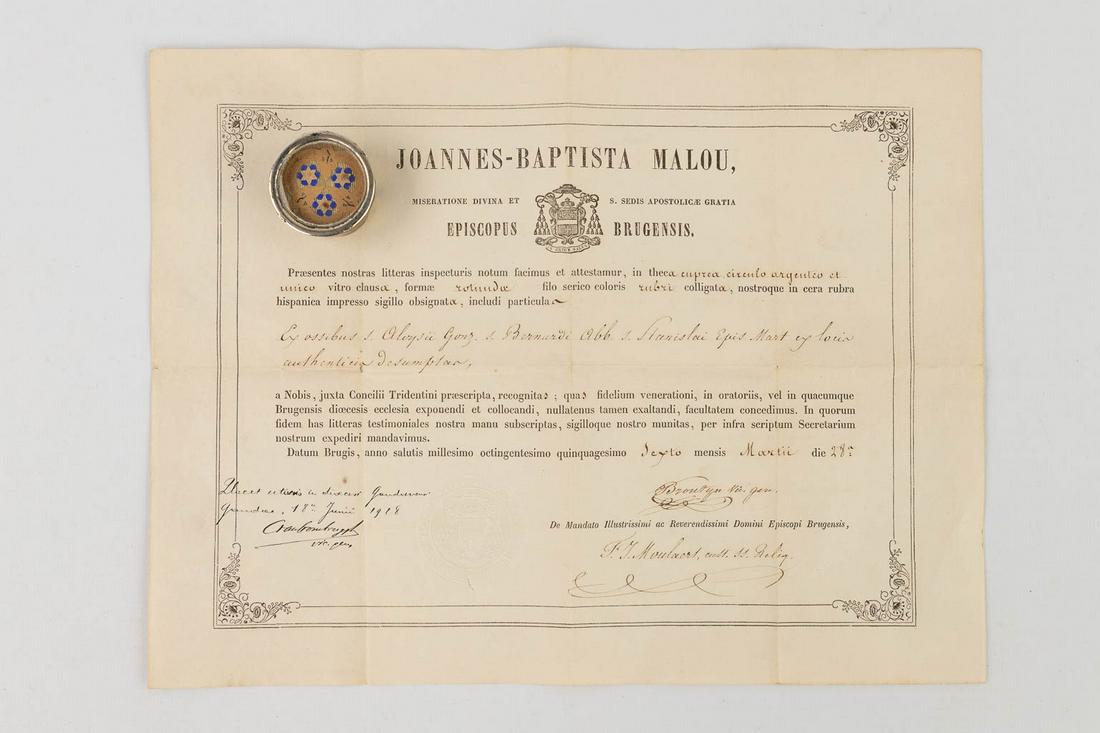 JOANNES-BAPTISTA MALOU,
MISERATIONE DIVINA ET S. SEDIS APOSTOLICÆ GRATIA
EPISCOPUS BRUGENSIS.
Præsentes nostras litteras inspecturis notum facimus et attestamur, in theca cuprea, circulo argenteo et
unico vitro clausa, formæ rotundæ filo serico coloris rubri colligata, nostroque in cera rubra
hispanica impresso sigillo obsignata, includi particulas
Ex ossibus s. Aloysii Gonz. s. Bernardi Abb. s. Stanislai Epis. Mart ex locis
authenticis desumptas,
a Nobis, juxta Concilii Tridentini præscripta, recognitas ; quas fidelium venerationi, in oratoriis, vel in quacumque
Brugensis diœcesis ecclesia exponendi et collocandi, nullatenus tamen exaltandi, facultatem concedimus. In quorum
fidem has litteras testimoniales nostra manu subscriptas, sigilloque nostro munitas, per infra scriptum Secretarium
nostrum expediri mandavimus.
Datum Brugis, anno salutis millesimo octingentesimo quinquagesimo sexto mensis Martii die 28ª
Gandavi, 18ª Junii 1918
vic. gen.
Vic. gen.
De Mandato Illustrissimi ac Reverendissimi Domini Episcopi Brugensis,
F. J. Moulaert, cust. SS. Reliq.